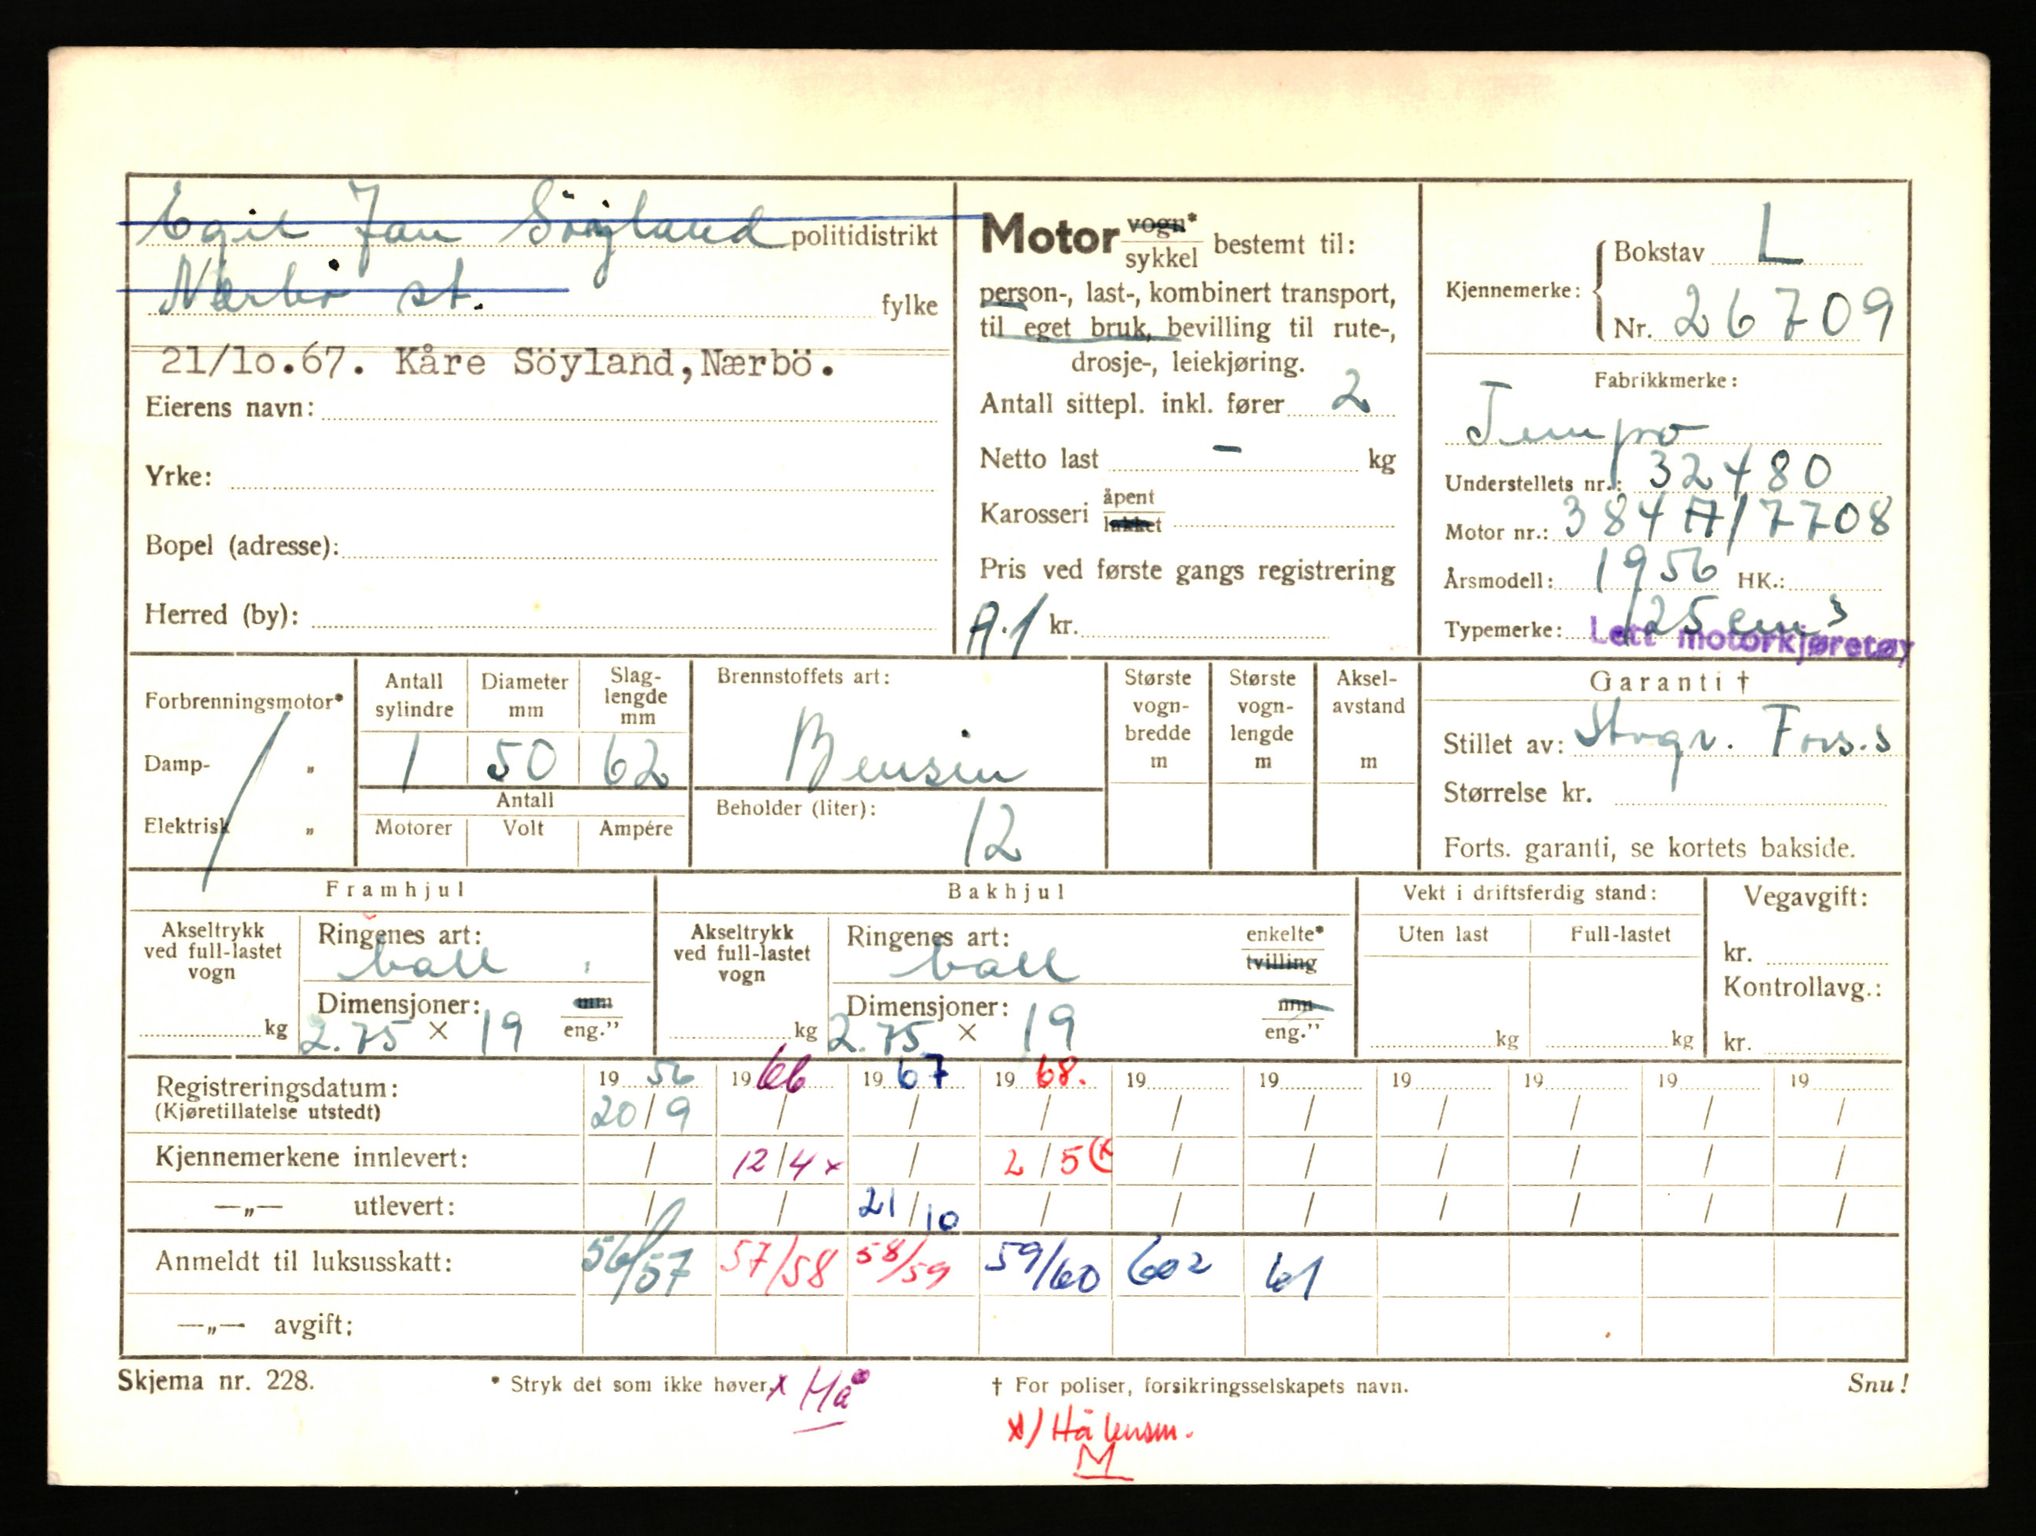 Egil Jan Söyland politidistrikt
Nærbø st. fylke
21/10.67. Kåre Söyland, Nærbö.
Eierens navn:
Yrke:
Bopel (adresse):
Herred (by):
Motor vogn* sykkel bestemt til:
person-, last-, kombinert transport,
til eget bruk, bevilling til rute-,
drosje-, leiekjøring.
Antall sittepl. inkl. fører 2
Netto last - kg
Karosseri åpent lukket
Pris ved første gangs registrering
A.1 kr.
Kjennemerke: Bokstav L
Nr. 26709
Fabrikkmerke:
Tempo
Understellets nr.: 32480
Motor nr.: 384A/7708
Årsmodell: 1956 HK.:
Typemerke: 125 cm3
Lett motorkjøretøy
Forbrenningsmotor*
Damp- „
Elektrisk „
Antall sylindre Diameter mm Slag-lengde mm
1 50 62
Antall
Motorer Volt Ampére
Brennstoffets art:
Bensin
Beholder (liter):
12
Største vogn-bredde m
Største vogn-lengde m
Aksel-avstand m
Garanti †
Stillet av: Storgr. Fors.s
Størrelse kr.
Forts. garanti, se kortets bakside.
Framhjul
Akseltrykk ved full-lastet vogn
kg
Ringenes art:
ball
Dimensjoner: mm
2.75 × 19 eng.”
Bakhjul
Akseltrykk ved full-lastet vogn
kg
Ringenes art: enkelte*
ball tvilling
Dimensjoner: mm
2.75 × 19 eng.”
Vekt i driftsferdig stand:
Uten last Full-lastet
kg kg
Vegavgift:
kr.
Kontrollavg.:
kr.
Registreringsdatum: 19 56 19 66 19 67 19 68. 19 19 19 19 19 19
(Kjøretillatelse utstedt) 20/9 / / / / / / / / /
Kjennemerkene innlevert: / 12/4 x / 2/5 (x / / / / / /
—„— utlevert: / / 21/10 / / / / / / /
Anmeldt til luksusskatt: 56/57 57/58 58/59 59/60 602 61
—„— avgift:
Skjema nr. 228. * Stryk det som ikke høver. x Hå † For poliser, forsikringsselskapets navn. Snu!
x) Hå lensm.
M